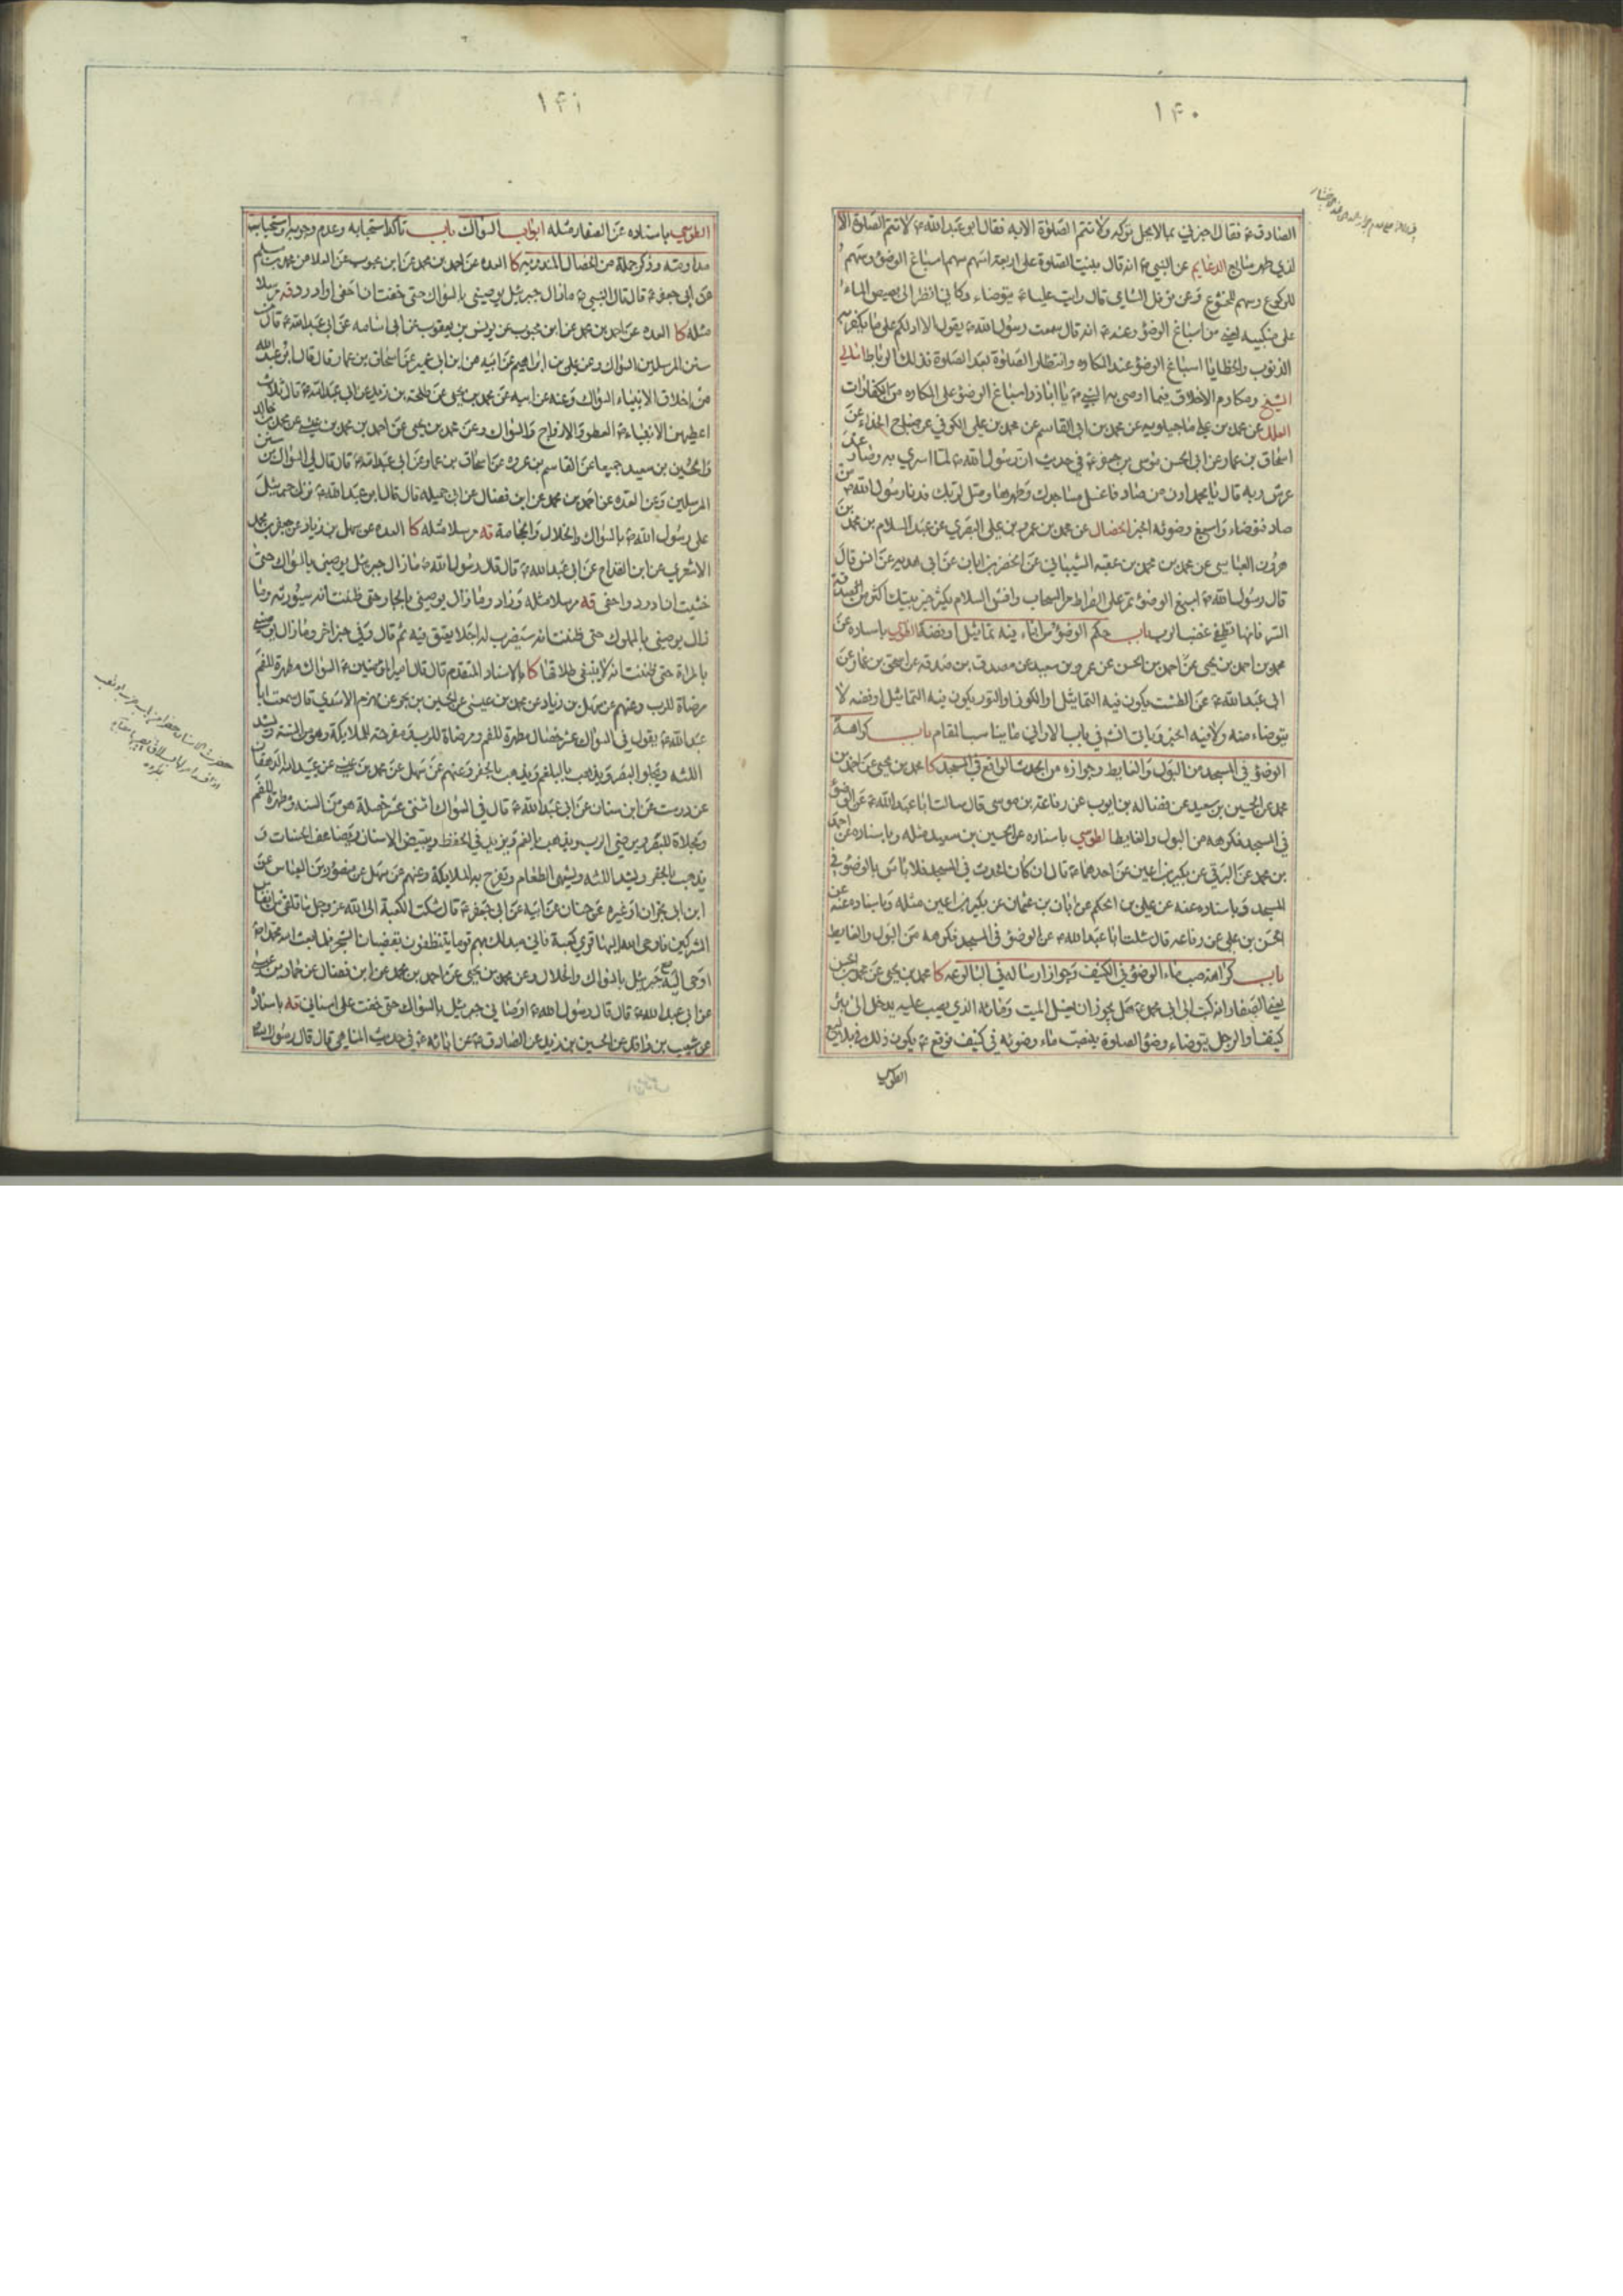 ۱۴۰
الصادق ع فقال اخبرني بما لا يحل تركه ولا تتم الصلوة الا به فقال ابو عبدالله ع لا تتم الصلوة الا
لذي طهر سابغ الدعايم عن النبي ص انه قال بنيت الصلوة على اربعة اسهم سهم اسباغ الوضوء وسهم
للركوع وسهم للخشوع وعن نوفل الشامي قال رايت عليا ع يتوضاء وكاني انظر الى بصيص الماء
على منكبيه يعني من اسباغ الوضوء وعنه ع انه قال سمعت رسول الله ص يقول الا ادلكم على ما يكفر به
الذنوب والخطايا اسباغ الوضوء عند المكاره وانتظار الصلوة بعد الصلوة فذلك الرباط امالي
الشيخ ومكارم الاخلاق فيما اوصى به النبي ص يا اباذر اسباغ الوضوء على المكاره من الكفارات
العلل عن محمد بن علي ماجيلويه عن محمد بن ابي القاسم عن محمد بن علي الكوفي عن صباح الحذاء عن
اسحاق بن عمار عن ابي الحسن موسى بن جعفر ع في حديث ان رسول الله ص لما اسري به وصار عند
عرش ربه قال يا محمد ادن من صاد فاغسل مساجدك وطهرها وصل لربك فدنا رسول الله ص من
صاد فتوضاء واسبغ وضوئه الخبر الخصال عن محمد بن عمرو بن علي البصري عن عبدالسلام بن محمد بن
هرون العباسي عن محمد بن محمد بن عقبه الشيباني عن الخضر بن ابان عن ابي هدبه عن انس قال
قال رسول الله ص اسبغ الوضوء تمر على الصراط مر السحاب وافش السلام يكثر خير بيتك اكثر من الصدقة
السر فانها تطفئ غضب الرب باب حكم الوضوء من اناء فيه تماثيل او فضة الطوسي باسناده عن
محمد بن احمد بن يحيى عن احمد بن الحسن عن عمرو بن سعيد عن مصدق بن صدقه عن اسحق بن عمار عن
ابي عبدالله ع عن الطشت يكون فيه التماثيل او الكوز او التور يكون فيه التماثيل او فضه لا
يتوضاء منه ولا فيه الخبر وياتي انشاء الله في باب الاواني ما يناسب المقام باب كراهة
الوضوء في المسجد من البول والغايط وجوازه من الحدث الواقع في المسجد كا محمد بن يحيى عن احمد بن
محمد عن الحسين بن سعيد عن فضاله بن ايوب عن رفاعة بن موسى قال سالت ابا عبدالله ع عن الوضوء
في المسجد فكرهه من البول والغايط الطوسي باسناده عن الحسين بن سعيد مثله وباسناده عن احمد
بن محمد عن البرقي عن بكير بن اعين عن احدهما ع قال ان كان الحدث في المسجد فلا باس بالوضوء في
المسجد وباسناده عنه عن علي بن الحكم عن ابان بن عثمان عن بكير بن اعين مثله وباسناده عنه عن
الحسن بن علي عن رفاعه قال سئلت ابا عبدالله ع عن الوضوء في المسجد فكرهه من البول والغايط
باب كراهة صب ماء الوضوء في الكنيف وجواز ارساله في البالوعه كا محمد بن يحيى عن محمد بن الحسن
يعني الصفار انه كتب الى ابي محمد ع هل يجوز ان يغسل الميت ومائه الذي يصب عليه يدخل الى بئر
كنيف او الرجل يتوضاء وضوء الصلوة ينصب ماء وضوئه في كنيف فوقع ع يكون ذلك في بلاليع
الطوسي
۱۴۱
الطوسي باسناده عن الصفار مثله ابواب السواك باب تاكد استحبابه وعدم وجوبه واستحباب
مداومته وذكر جملة من الخصال المندوبه كا العده عن احمد بن محمد عن ابن محبوب عن العلا عن محمد بن مسلم
عن ابي جعفر ع قال قال النبي ص ما زال جبرئيل يوصيني بالسواك حتى خفت ان احفى او ادرد قه مرسلا
مثله كا العده عن احمد بن محمد عن ابن محبوب عن يونس بن يعقوب عن ابي اسامه عن ابي عبدالله ع قال من
سنن المرسلين السواك وعن علي بن ابراهيم عن ابيه عن ابن ابي عمير عن اسحاق بن عمار قال قال ابو عبدالله
من اخلاق الانبياء السواك وعنه عن ابيه عن محمد بن يحيى عن طلحة بن زيد عن ابي عبدالله ع قال ثلاث
اعطيهن الانبياء ع العطر والازواج والسواك وعن محمد بن يحيى عن احمد بن محمد بن عيسى عن محمد بن خالد
والحسين بن سعيد جميعا عن القاسم بن عروه عن اسحاق بن عمار عن ابي عبدالله ع قال قال لي السواك من سنن
المرسلين وعن العده عن احمد بن محمد عن ابن فضال عن ابي جميله قال قال ابو عبدالله ع نزل جبرئيل
على رسول الله ص بالسواك والخلال والحجامة قه مرسلا مثله كا العده عن سهل بن زياد عن جعفر بن محمد
الاشعري عن ابن القداح عن ابي عبدالله ع قال قال رسول الله ص ما زال جبرئيل يوصيني بالسواك حتى
خشيت ان ادرد واحفى قه مرسلا مثله وزاد وما زال يوصيني بالجار حتى ظننت انه سيورثه وما
زال يوصيني بالمملوك حتى ظننت انه سيضرب له اجلا يعتق فيه ثم قال وفي خبر اخر وما زال يوصيني
بالمراة حتى ظننت انه لا ينبغي طلاقها كا بالاسناد المتقدم قال قال امير المؤمنين ع السواك مطهرة للفم
مرضاة للرب وعنهم عن سهل بن زياد عن محمد بن عيسى عن الحسين بن بحر عن مهزم الاسدي قال سمعت ابا
عبدالله ع يقول في السواك عشر خصال مطهرة للفم ومرضاة للرب ومفرحة للملائكة وهو من السنة ويشد
اللثه ويجلو البصر ويذهب بالبلغم ويذهب بالحفر وعنهم عن سهل عن محمد بن عيسى عن عبيدالله الدهقان
عن درست عن ابن سنان عن ابي عبدالله ع قال في السواك اثنتى عشر خصلة هو من السنه ومطهرة للفم
ومجلاة للبصر ويرضي الرب ويذهب بالغم ويزيد في الحفظ ويبيض الاسنان ويضاعف الحسنات و
يذهب بالحفر ويشد اللثه ويشهي الطعام وتفرح به الملائكة وعنهم عن سهل عن منصور بن العباس عن
ابن ابي نجران او غيره عن حنان عن ابيه عن ابي جعفر ع قال شكت الكعبة الى الله عز وجل ما تلقى من انفاس
المشركين فاوحى الله اليها قري كعبة فاني مبدلك بهم قوما يتنظفون بقضبان الشجر فلما بعث الله محمدا ص
اوحى اليه مع جبرئيل بالسواك والخلال وعن محمد بن يحيى عن احمد بن محمد عن ابن فضال عن حماد بن عيسى
عن ابي عبدالله ع قال قال رسول الله ص اوصاني جبرئيل بالسواك حتى خفت على اسناني قه باسناده
عن شعيب بن واقد عن الحسين بن زيد عن الصادق ع عن ابائه ع في حديث المناهي قال قال رسول الله ص